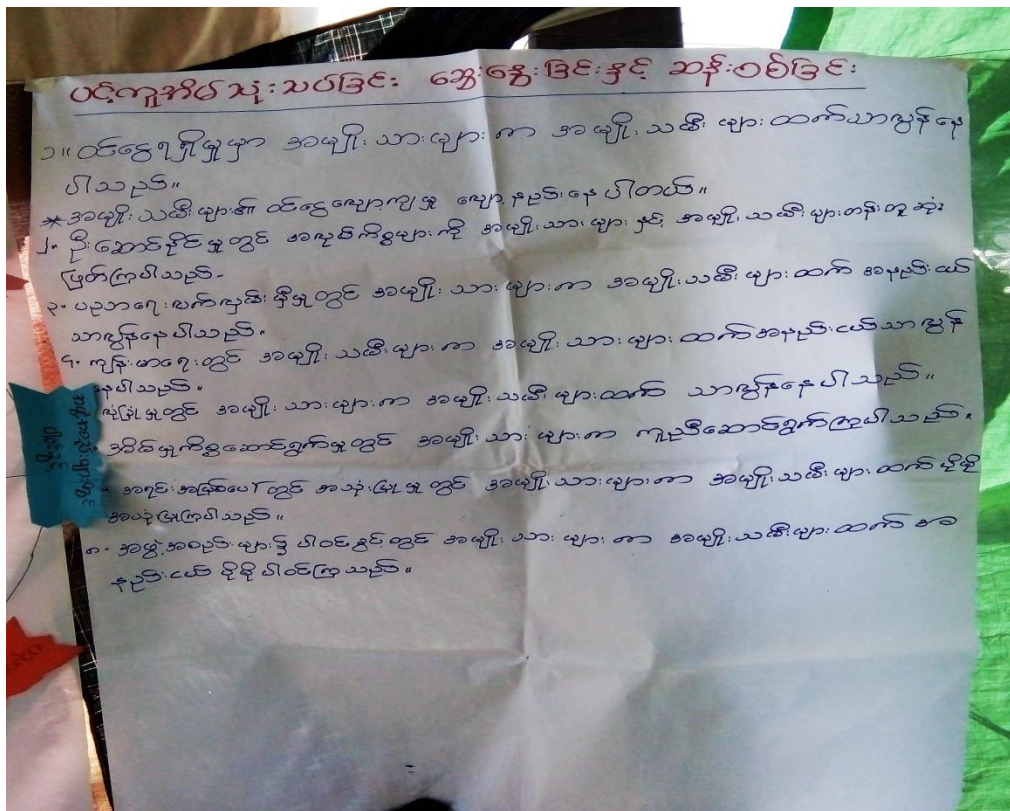 ပင့်ကူအိမ်သုံးသပ်ခြင်း ဆွေးနွေးခြင်းနှင့် ဆန်းစစ်ခြင်း
၁။ ဝင်ငွေရရှိမှုမှာ အမျိုးသားများကာ အမျိုးသမီးများထက်သာလွန်နေ
ပါသည်။
* အမျိုးသမီးများ၏ ဝင်ငွေလျော့ကျမှု လျော့နည်းနေပါတယ်။
၂. ဦးဆောင်နိုင်မှုတွင် အလုပ်ကိစ္စများကို အမျိုးသားများနှင့် အမျိုးသမီးများတန်းတူဆုံး
ဖြတ်ကြပါသည်-
၃. ပညာရေးလက်လှမ်းမှီမှုတွင် အမျိုးသားများကာ အမျိုးသမီးများထက် အနည်းငယ်
သာလွန်နေပါသည်.
၄. ကျန်းမာရေးတွင် အမျိုးသမီးများကာ အမျိုးသားများထက်အနည်းငယ်သာလွန်
နေပါသည်.
လုံခြုံမှုတွင် အမျိုးသားများကာ အမျိုးသမီးများထက် သာလွန်နေပါသည်။
အိမ်မှုကိစ္စဆောင်ရွက်မှုတွင် အမျိုးသားများကာ ကူညီဆောင်ရွက်ကြပါသည်.
အရင်းအမြစ်ပေါ်တွင် အသုံးပြုမှုတွင် အမျိုးသားများကာ အမျိုးသမီးများထက် ပိုမို
အသုံးပြုကြပါသည်။
၈. အဖွဲ့အစည်းများ၌ ပါဝင်ခွင့်တွင် အမျိုးသားများကာ အမျိုးသမီးများထက် အ
နည်းငယ် ပိုမိုပါဝင်ကြသည်.